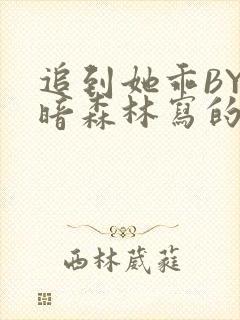 追到她乖BY
暗森林寫的
西林葳蕤